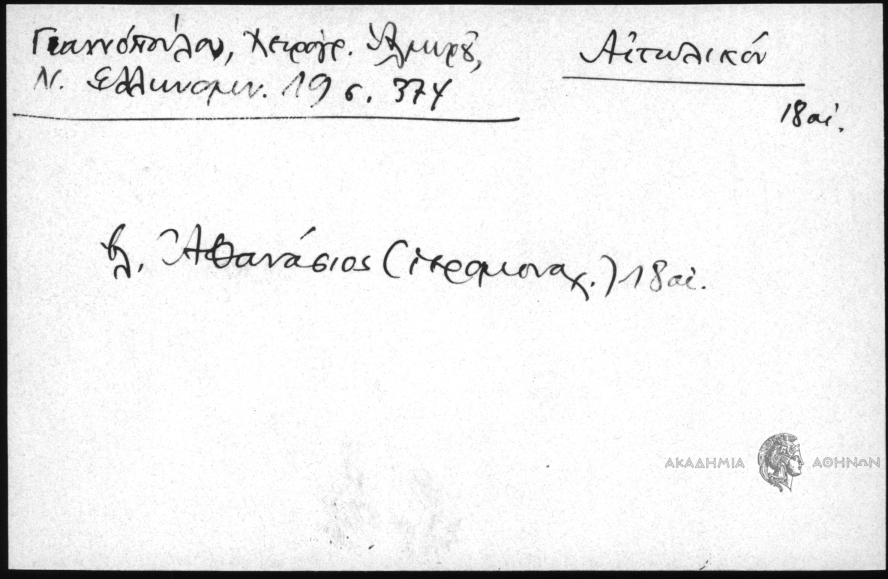 Γιαννόπουλου, Χειρόγρ. Ἁλμυροῦ,
Ν. Ἑλληνομν. 19 σ. 374
Αἰτωλικόν
18 αἰ.
βλ. Ἀθανάσιος (ἱερομοναχ.) 18 αἰ.
ΑΚΑΔΗΜΙΑ ΑΘΗΝΩΝ